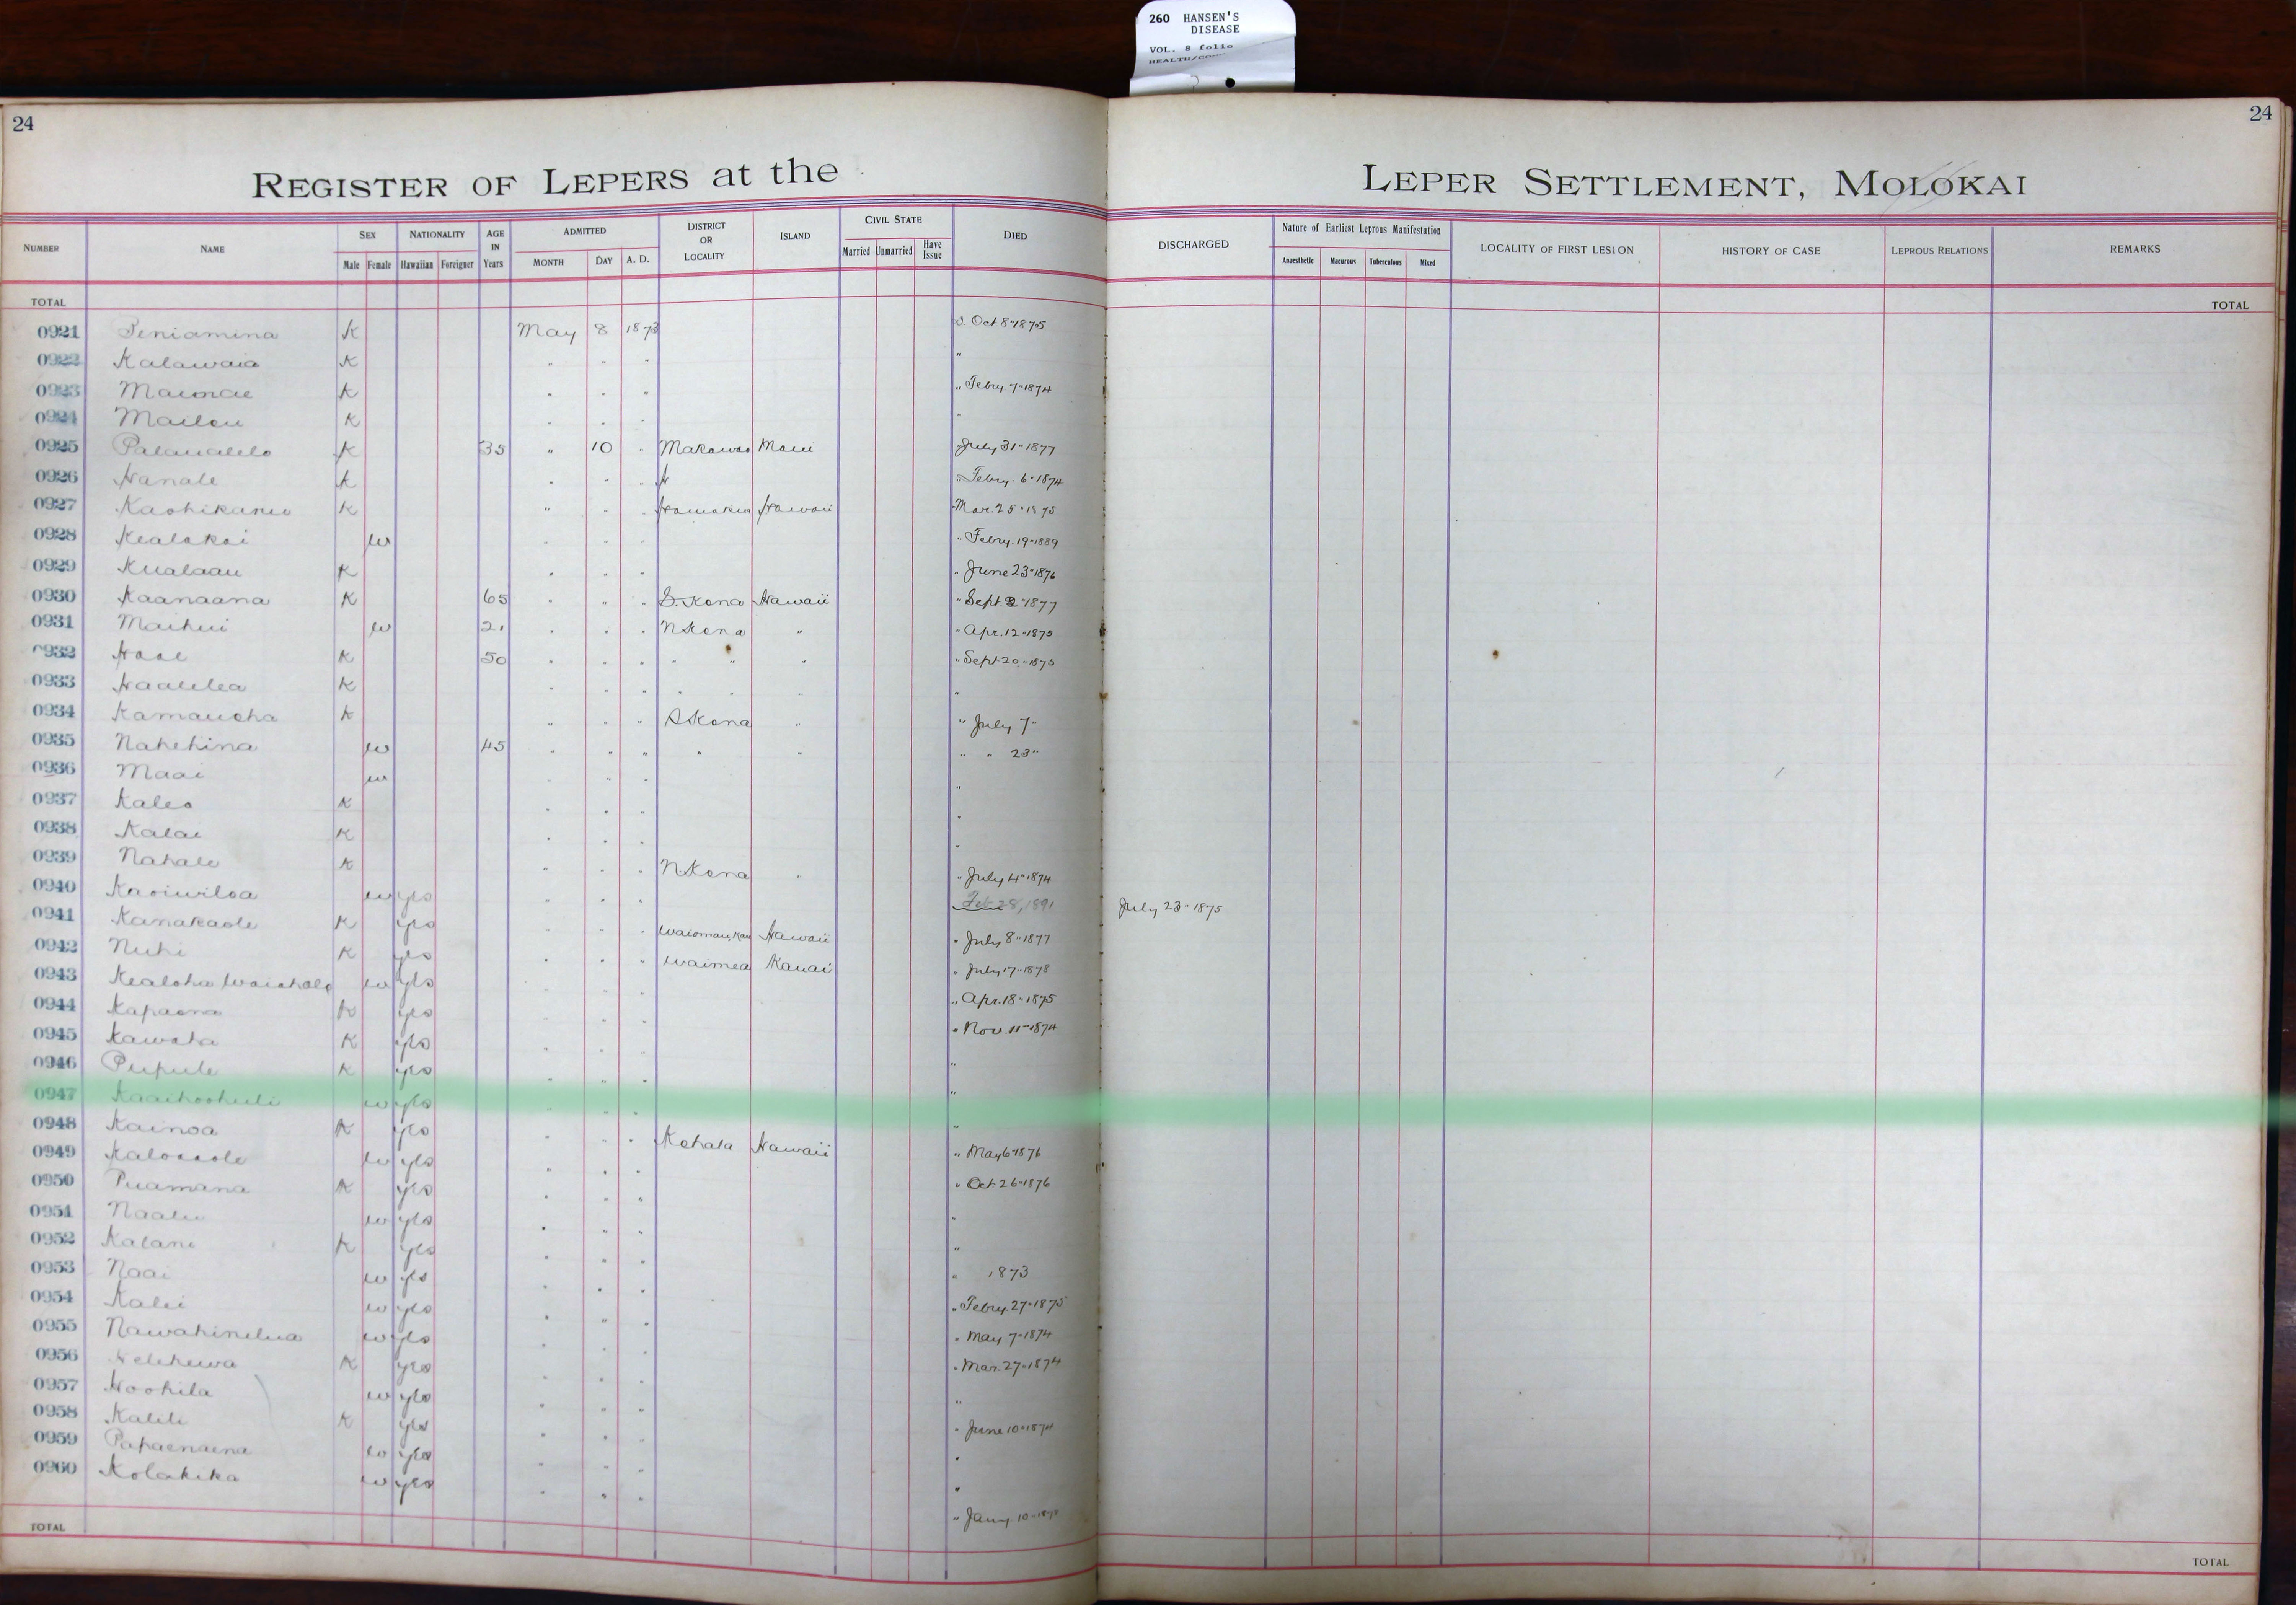 260 HANSEN'S
DISEASE
VOL. 8 folio
24
24
REGISTER OF LEPERS at the LEPER SETTLEMENT, MOLOKAI
NUMBER NAME SEX Male Female NATIONALITY Hawaiian Foreigner AGE IN Years ADMITTED MONTH DAY A. D. DISTRICT OR LOCALITY ISLAND CIVIL STATE Married Unmarried Have Issue DIED DISCHARGED Nature of Earliest Leprous Manifestation Anaesthetic Macurous Tuberculous Mixed LOCALITY OF FIRST LESION HISTORY OF CASE LEPROUS RELATIONS REMARKS
TOTAL TOTAL
0921 Peniamina K May 8 1873 Oct 8" 1875
0922 Kalawaia K " " " "
0923 Maunae K " " " " Febry. 7" 1874
0924 Mailou K " " " "
0925 Palaualelo K 35 " 10 " Makawao Maui July 31" 1877
0926 Hanale K " " " " Febry. 6" 1874
0927 K " " " Hamakua Hawaii Mar. 25" 1875
0928 Kealakai w " " " " Febry. 19" 1889
0929 Kualaau K " " " " June 23" 1876
0930 Kaanaana K 65 " " " S. Kona Hawaii " Sept 2" 1877
0931 Maihui w 21 " " " N Kona " " Apr. 12" 1875
0932 Hoae K 50 " " " " " " " Sept 20" 1875
0933 Haalelea K " " " " " " "
0934 Kamauoha K " " " S Kona " " July 7"
0935 Nahehina w 45 " " " " " " " 23"
0936 Maai w " " " "
0937 Kaleo K " " " "
0938 Kalai K " " " "
0939 Nahale K " " " N Kona " " July 4" 1874
0940 Kaoiwiloa w yes " " " Feb 28, 1891 July 23" 1875
0941 Kanakaole K yes " " " Hawaii " July 8" 1877
0942 Nuhi K yes " " " Waimea Kauai " July 17" 1878
0943 Kealoha w yes " " " " Apr. 18" 1875
0944 Kapaona K yes " " " " Nov. 11" 1874
0945 Kawaha K yes " " " "
0946 Pupule K yes " " " "
0947 Kaaihoohuli w yes " " " "
0948 Kainoa K yes " " " Kohala Hawaii " May 6" 1876
0949 w yes " " " " Oct 26" 1876
0950 Puamana K yes " " " "
0951 Naalu w yes " " " "
0952 Kalani K yes " " " " 1873
0953 Naai w yes " " " " Febry. 27" 1875
0954 Kalei w yes " " " " May 7" 1874
0955 Nawahinelua w yes " " " " Mar. 27" 1874
0956 Kelekewa K yes " " " "
0957 Hoohila w yes " " " " June 10" 1874
0958 Kalili K yes " " " "
0959 Papaenaena w yes " " " "
0960 Kolakika w yes " " " " Jany. 10"
TOTAL TOTAL